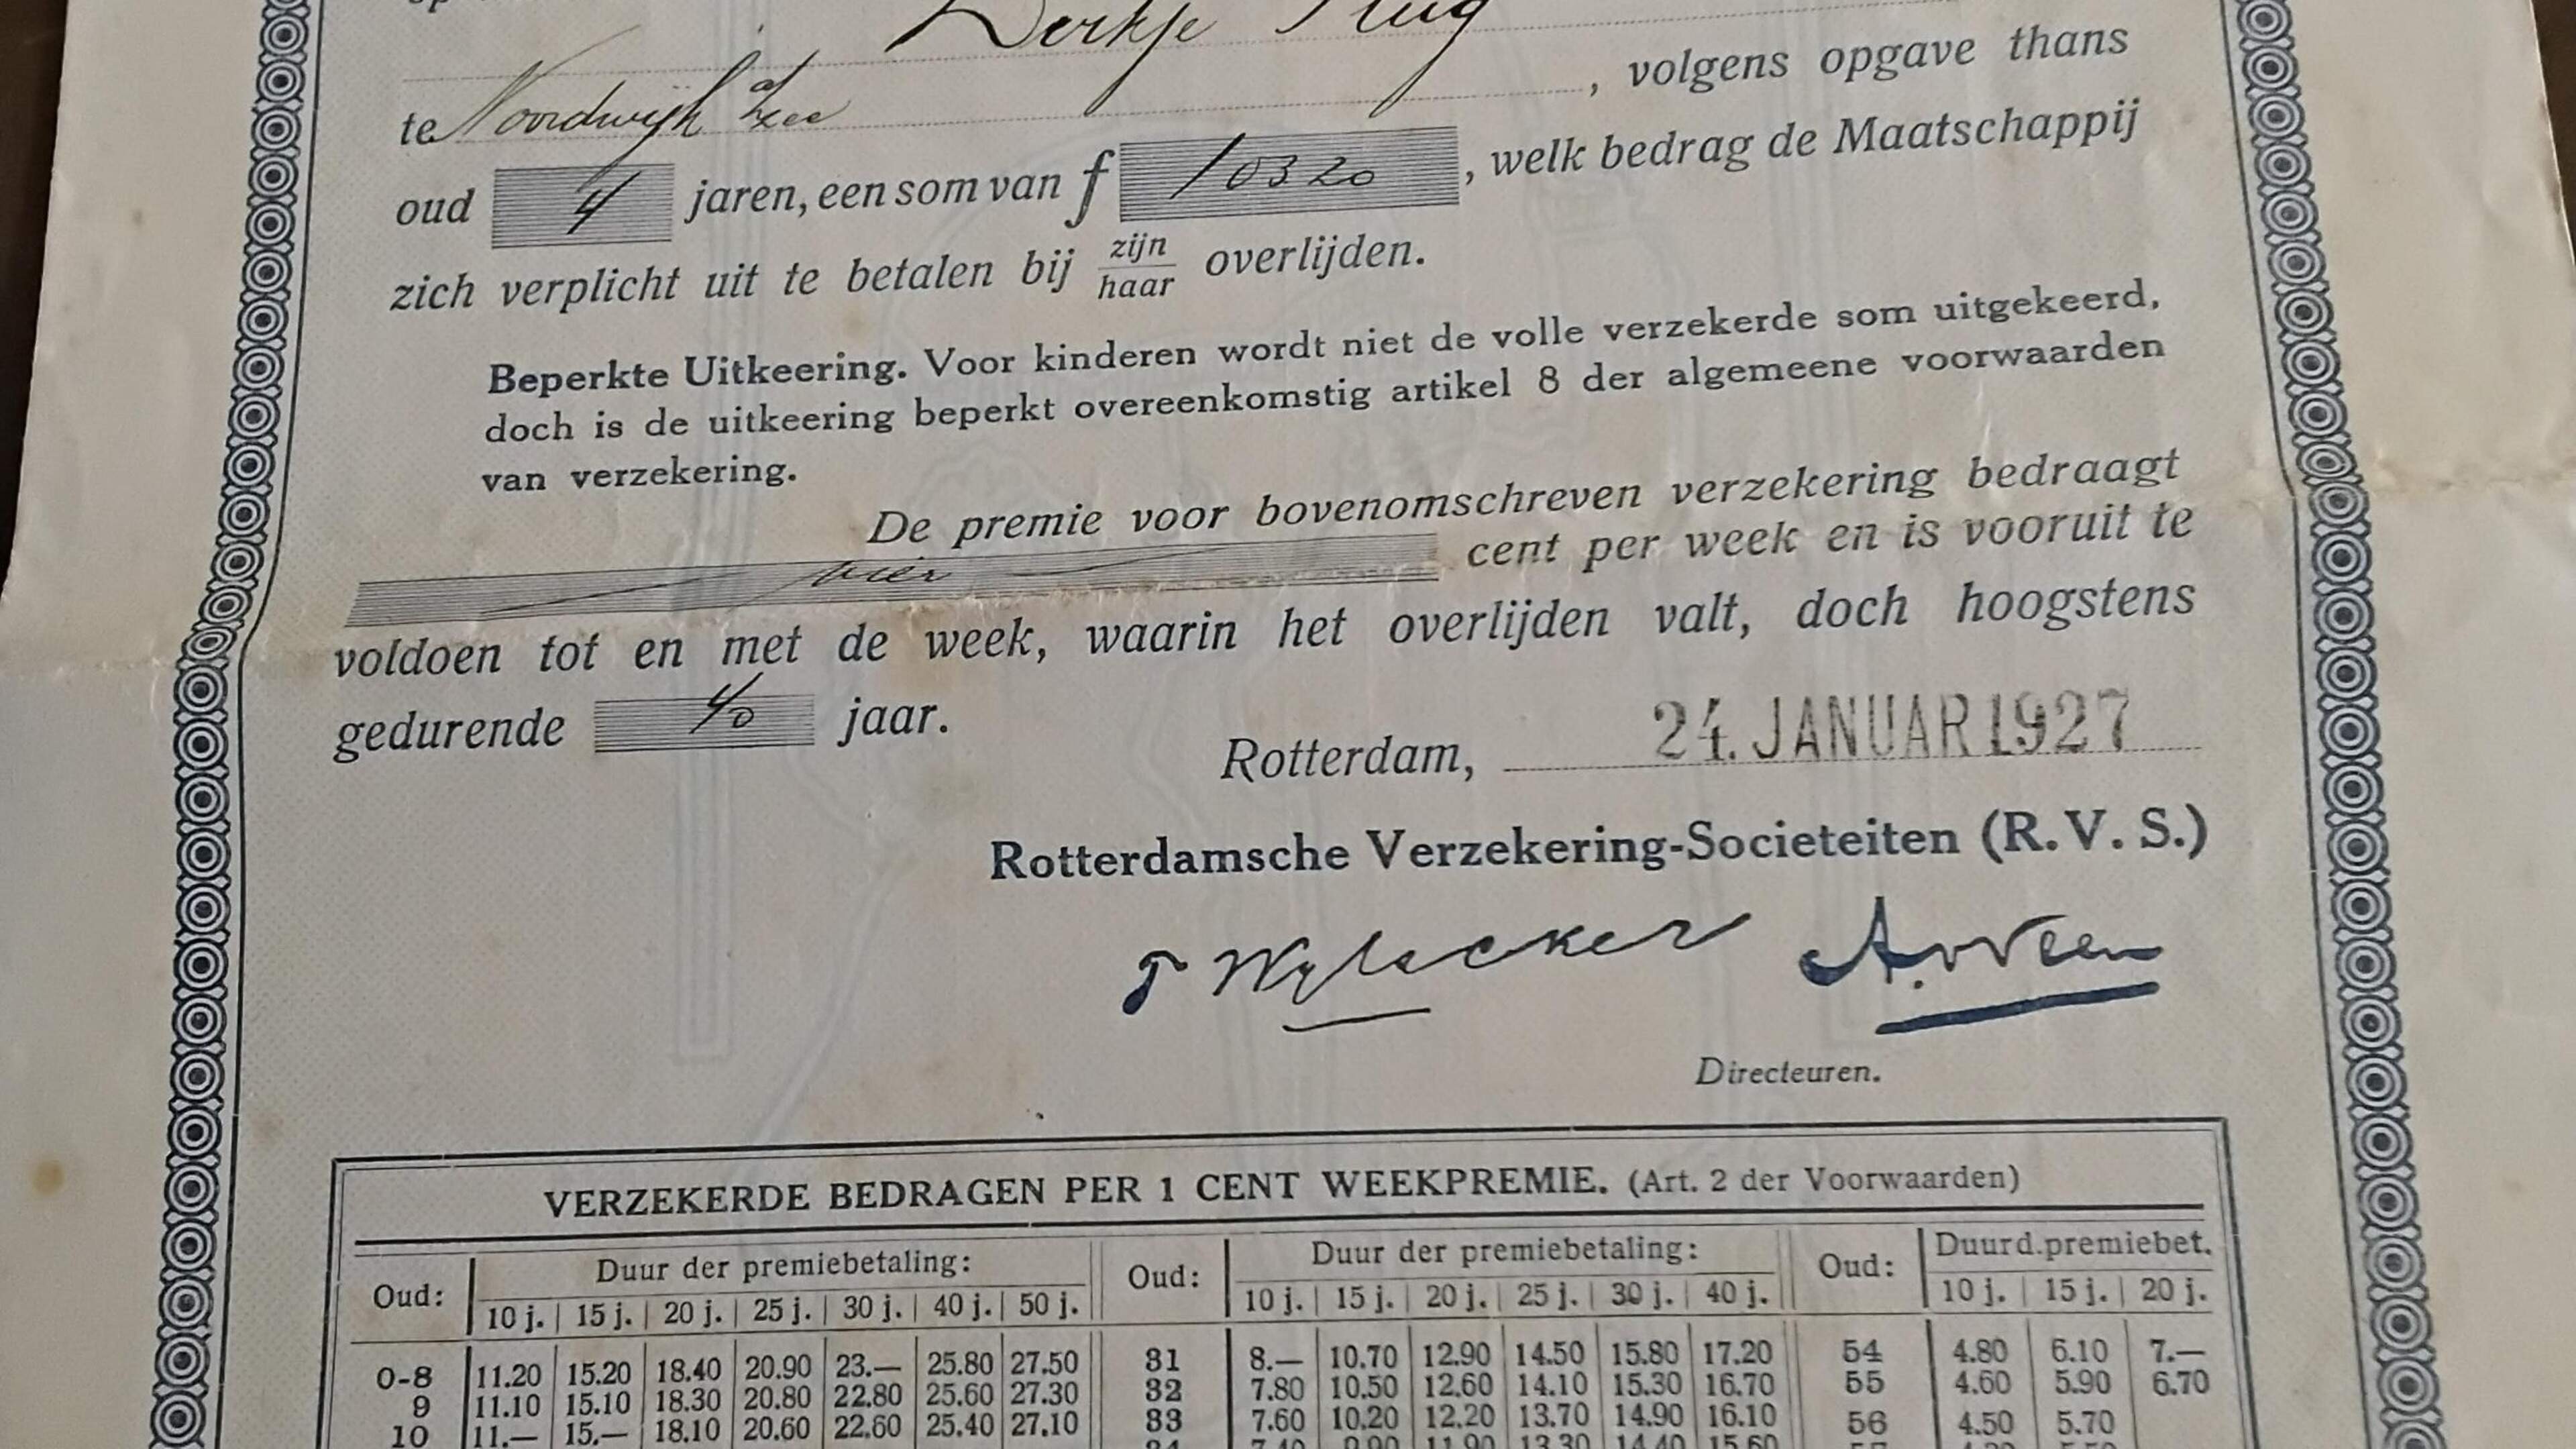 Derkje Plug
te Noordwijk a/zee , volgens opgave thans
oud 4 jaren, een som van f 10320, welk bedrag de Maatschappij
zich verplicht uit te betalen bij zijn/haar overlijden.
Beperkte Uitkeering. Voor kinderen wordt niet de volle verzekerde som uitgekeerd,
doch is de uitkeering beperkt overeenkomstig artikel 8 der algemeene voorwaarden
van verzekering.
De premie voor bovenomschreven verzekering bedraagt
vier cent per week en is vooruit te
voldoen tot en met de week, waarin het overlijden valt, doch hoogstens
gedurende 40 jaar.
Rotterdam, 24. JANUARI 1927
Rotterdamsche Verzekering-Societeiten (R.V.S.)
A. v Veen
Directeuren.
VERZEKERDE BEDRAGEN PER 1 CENT WEEKPREMIE. (Art. 2 der Voorwaarden)
Oud: Duur der premiebetaling: Oud: Duur der premiebetaling: Oud: Duur d. premiebet.
10 j. 15 j. 20 j. 25 j. 30 j. 40 j. 50 j. 10 j. 15 j. 20 j. 25 j. 30 j. 40 j. 10 j. 15 j. 20 j.
0-8 11.20 15.20 18.40 20.90 23.— 25.80 27.50 31 8.— 10.70 12.90 14.50 15.80 17.20 54 4.80 6.10 7.—
9 11.10 15.10 18.30 20.80 22.80 25.60 27.30 32 7.80 10.50 12.60 14.10 15.30 16.70 55 4.60 5.90 6.70
10 11.— 15.— 18.10 20.60 22.60 25.40 27.10 33 7.60 10.20 12.20 13.70 14.90 16.10 56 4.50 5.70